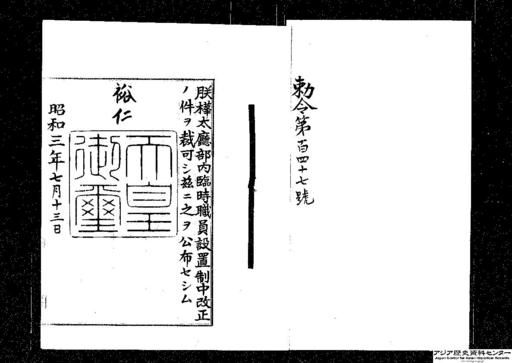 勅令第百四十七號
朕樺太廳部内臨時職員設置制中改正
ノ件ヲ裁可シ茲ニ之ヲ公布セシム
裕仁
天皇御璽
昭和三年七月十三日
アジア歴史資料センター
Japan Center for Asian Historical Records